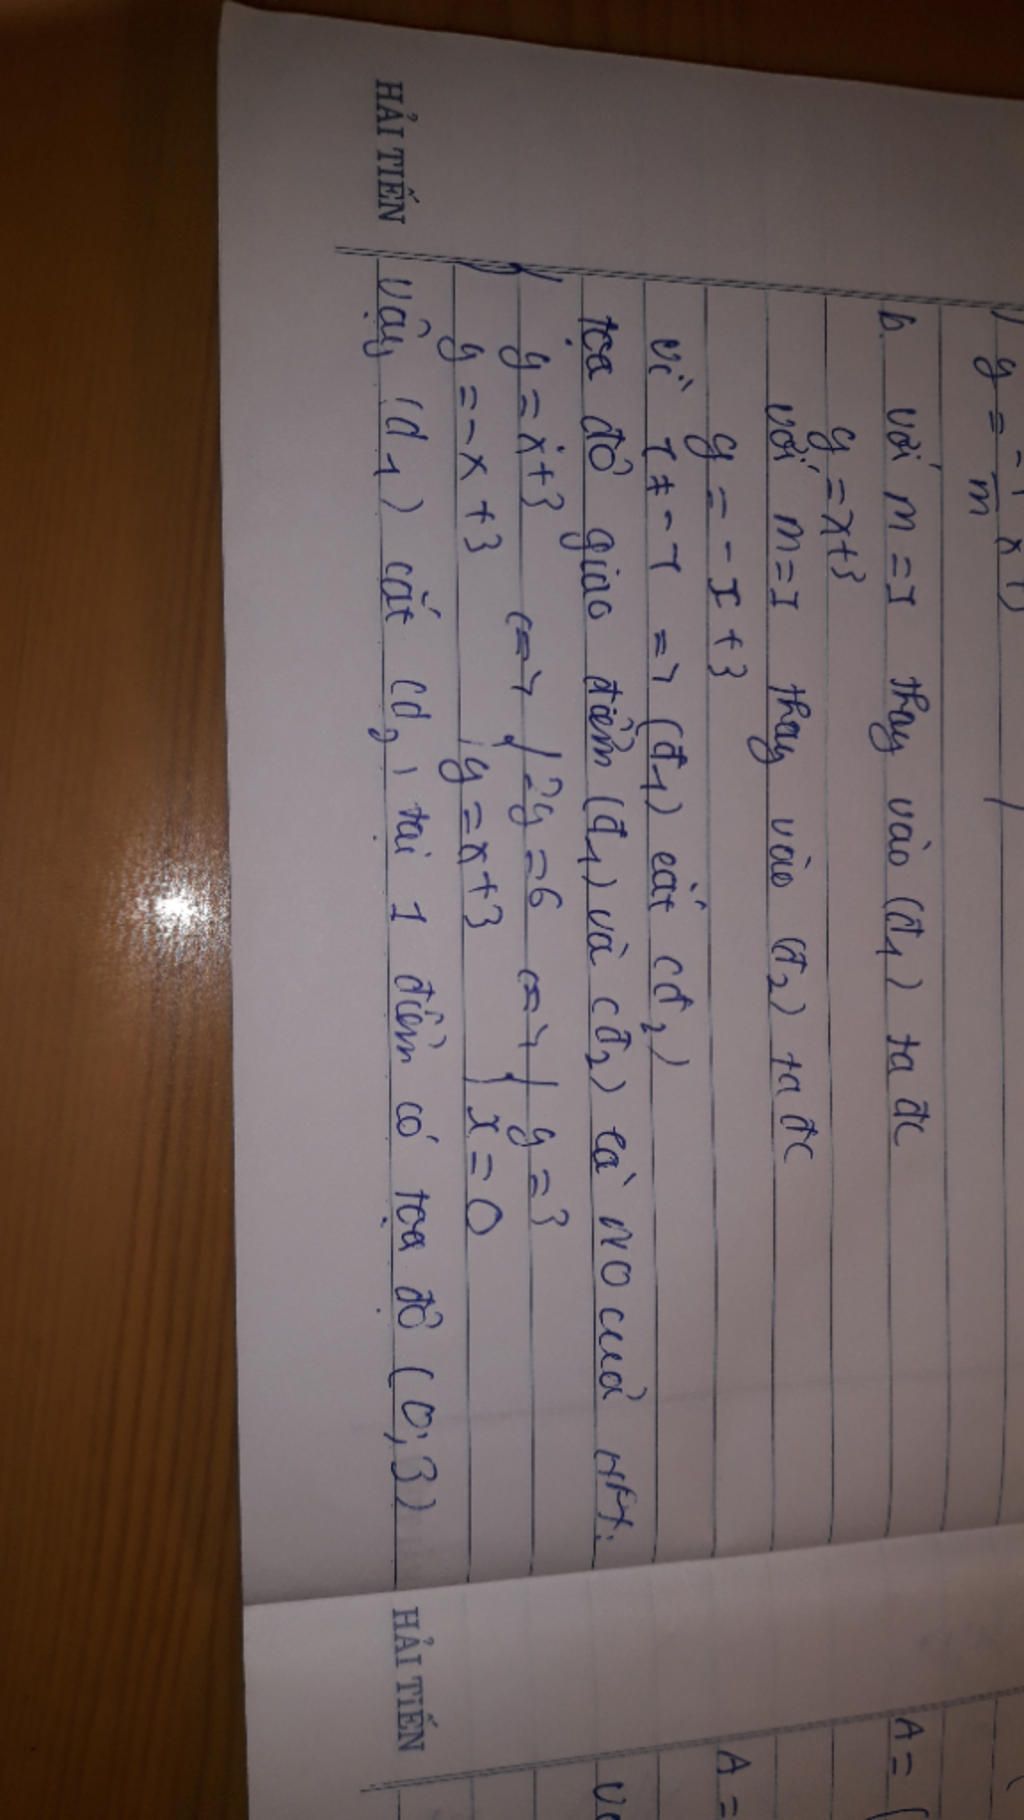 y = -1/m x
b. với m = 1 thay vào (d1) ta đc
y = x+3
với m = 1 thay vào (d2) ta đc
y = - x + 3
vì 1 ≠ - 1 => (d1) cắt (d2)
tọa độ giao điểm (d1) và (d2) là NO của HPT:
{ y = x+3 <=> { 2y = 6 <=> { y = 3
y = - x + 3 y = x+3 x = 0
vậy (d1) cắt (d2) tại 1 điểm có tọa độ (0; 3)
HẢI TIẾN
A = (
A =
HẢI TIẾN